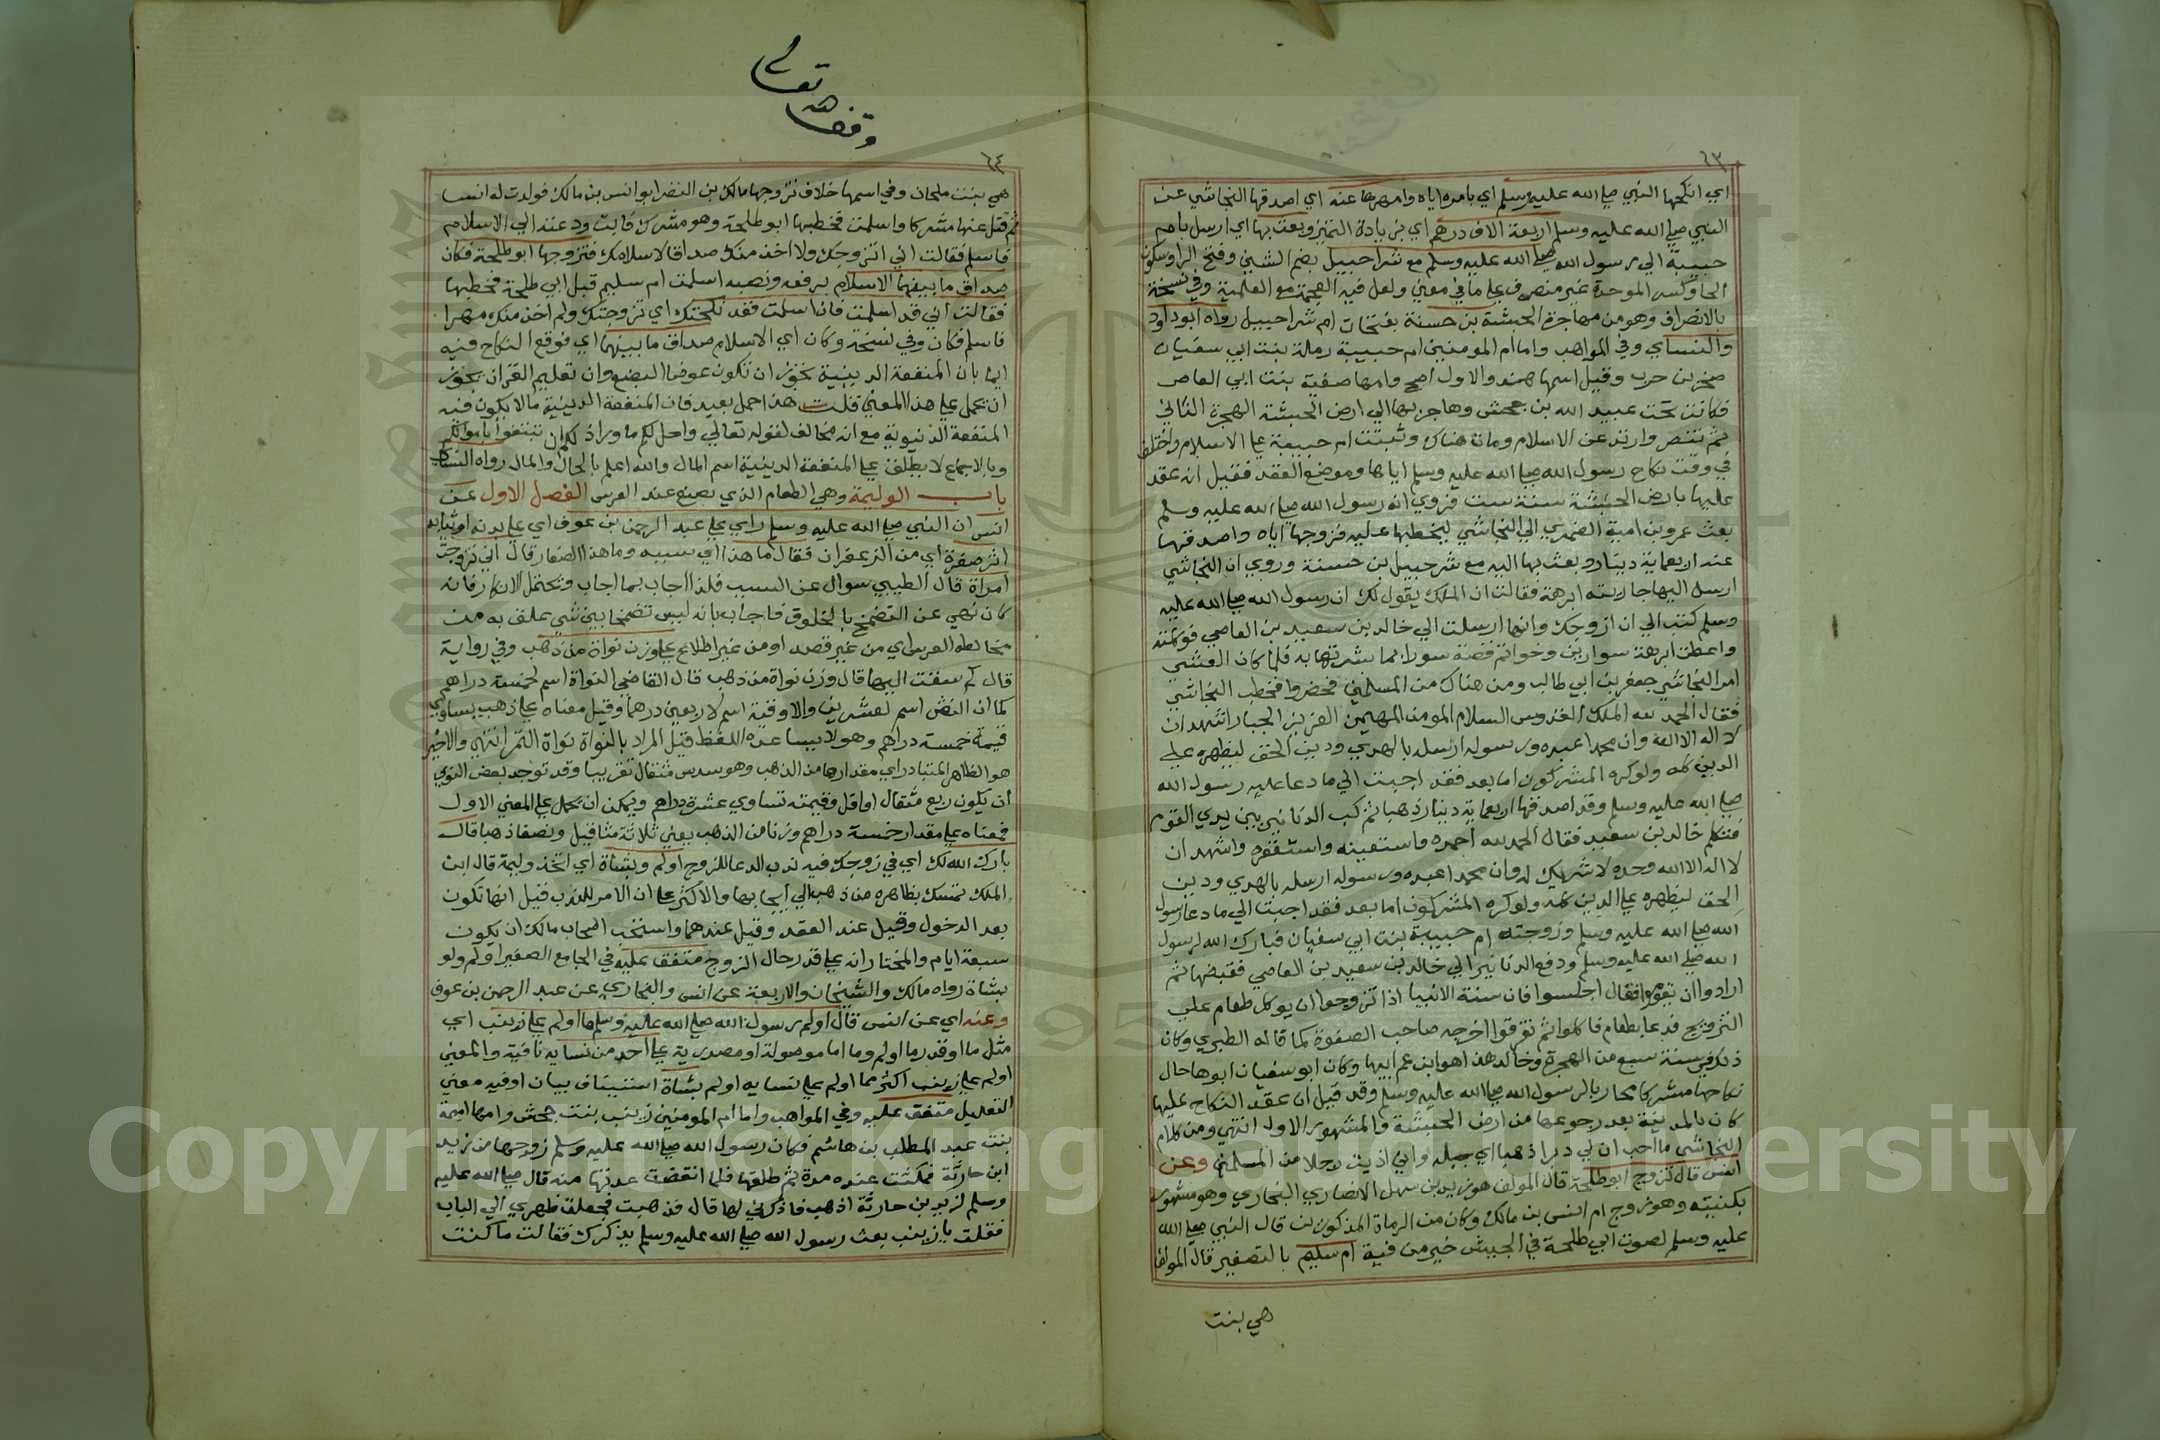 ٦٣
اي انكحها النبي صلى الله عليه وسلم اي بامره اياه وامهرها عنه اي اصدقها النجاشي عن
النبي صلى الله عليه وسلم اربعة الاف درهم اي بزيادة التمييز وبعث بها اي ارسل بام
حبيبة الي رسول الله صلى الله عليه وسلم مع شراحبيل بضم الشين وفتح الرا وسكون
الحا وكسر الموحدة غير منصرف علي ما في مغني ولعل فيه العجمة مع العلمية وفي نسخة
بالانصراف وهو من مهاجرة الحبشة بن حسنة بفتحات ام شراحبيل رواه ابو داود
والنساي وفي المواهب واما ام المومنين ام حبيبة رملة بنت ابي سفيان
صخر بن حرب وقيل اسمها هند والاول اصح وامها صفية بنت ابي العاص
فكانت تحت عبيد الله بن جحش وهاجر بها الي ارض الحبشة الهجرة الثاني
ثم تنصر وارتد عن الاسلام ومات هناك وثبتت ام حبيبة علي الاسلام واختلف
في وقت نكاح رسول الله صلى الله عليه وسلم اياها وموضع العقد فقيل انه عقد
عليها بارض الحبشة سنة ست فروي انه رسول الله صلى الله عليه وسلم
بعث عمرو بن امية الضمري الي النجاشي ليخطبها عليه فزوجها اياه واصدقها
عنه اربعماية دينار وبعث بها اليه مع شرحبيل بن حسنة وروي ان النجاشي
ارسل اليها جاريته ابرهة فقالت ان الملك يقول لك ان رسول الله صلى الله عليه
وسلم كتب الي ان ازوجك وانها ارسلت الي خالد بن سعيد بن العاصي فوكلته
واعطت ابرهة سوارين وخواتم فضة سورا بما بشرتها به فلما كان العشي
امر النجاشي جعفر بن ابي طالب ومن هناك من المسلمين فحضروا فخطب النجاشي
فقال الحمد لله الملك القدوس السلام المومن المهيمن العزيز الجبار اشهد ان
لا اله الا الله وان محمدا عبده ورسوله ارسله بالهدي ودين الحق ليظهره علي
الدين كله ولو كره المشركون اما بعد فقد اجبت الي ما دعا عليه رسول الله
صلى الله عليه وسلم وقد اصدقها اربعماية دينار ذهبا ثم كب الدنانير بين يدي القوم
فتكلم خالد بن سعيد فقال الحمد لله احمده واستعينه واستغفره واشهد ان
لا اله الا الله وحده لا شريك له وان محمدا عبده ورسوله ارسله بالهدي ودين
الحق ليظهره علي الدين كله ولو كره المشركون اما بعد فقد اجبت الي ما دعا رسول
الله صلى الله عليه وسلم وزوجته ام حبيبة بنت ابي سفيان فبارك الله لرسول
الله صلى الله عليه وسلم ودفع الدنانير الي خالد بن سعيد بن العاصي فقبضها ثم
ارادوا ان يقوموا فقال اجلسوا فان سنة الانبيا اذا تزوجوا ان يوكل طعام علي
التزويج فدعا بطعام فاكلوا ثم تفرقوا اخرجه صاحب الصفوة كما قاله الطبري وكان
ذلك في سنة سبع من الهجرة وخالد هذا هو ابن عم ابيها وكان ابو سفيان ابوها حال
نكاحها مشركا محاربا لرسول الله صلى الله عليه وسلم وقد قيل ان عقد النكاح عليها
كان بالمدينة بعد رجوعها من ارض الحبشة والمشهور الاول انتهي ومن كلام
النجاشي ما احب ان لي دبرا ذهبا اي جبله واني اذيت رجلا من المسلمين وعن
انس قال تزوج ابو طلحة قال المولف هو زيد بن سهل الانصاري النجاري وهو مشهور
بكنيته وهو زوج ام انس بن مالك وكان من الرماة المذكورين قال النبي صلى الله
عليه وسلم لصوت ابي طلحة في الجيش خير من فية ام سليم بالتصغير قال المولف
هي بنت
وقف لله تعالي
٦٤
هي بنت ملحان وفي اسمها خلاف تزوجها مالك بن النضر ابو انس بن مالك فولدت له انسا
ثم قتل عنها مشركا واسلمت فخطبها ابو طلحة وهو مشرك فابت ودعته الي الاسلام
فاسلم فقالت اني اتزوجك ولا اخذ منك صداقا لاسلامك فتزوجها ابو طلحة فكان
صداق ما بينهما الاسلام برفعه ونصبه اسلمت ام سليم قبل ابي طلحة فخطبها
فقالت اني قد اسلمت فان اسلمت فقد نكحتك اي تزوجتك ولم اخذ منك مهرا
فاسلم فكان وفي نسخة وكان اي الاسلام صداق ما بينهما اي فوقع النكاح فيه
ايما بان المنفعة الدينية تجوز ان تكون عوض البضع وان تعليم القران يجوز
ان يحمل علي هذا المعني قلت هذا حمل بعيد فان المنفعة الدينية مالا يكون فيه
المنفعة الدنيوية مع انه مخالف لقوله تعالي واحل لكم ما وراء ذلكم ان تبتغوا باموالكم
وبالاجماع لا يطلق علي المنفعة الدينية اسم المال والله اعلم بالحال والمال رواه النساي
باب الوليمة وهي الطعام الذي يصنع عند العرس الفصل الاول عن
انس ان النبي صلى الله عليه وسلم راي علي عبد الرحمن بن عوف اي علي بدنه او ثيابه
اثر صفرة اي من الزعفران فقال ما هذا اي سببه وما هذا الصفار قال اني تزوجت
امراة قال الطيبي سوال عن السبب فلذا اجاب بما اجاب ويحتمل الانكار فانه
كان نهي عن التضمخ بالخلوق فاجاب بانه ليس تضمخا بين شي علق به من
مخالطة العروس اي من غير قصد او من غير اطلاع علي وزن نواة من ذهب وفي رواية
قال كم سقت اليها قال وزن نواة من ذهب قال القاضي النواة اسم لخمسة دراهم
كما ان النش اسم لعشرين والاوقية اسم لاربعين درهما وقيل معناه علي ذهب يساوي
قيمة خمسة دراهم وهو لا يساعده اللفظ قيل المراد بالنواة نواة التمر انتهي والاخير
هو الظاهر المتبادر اي مقدارها من الذهب وهو سدس مثقال تقريبا وقد توجد بعض النوي
ان يكون ربع مثقال او اقل وقيمته تساوي عشرة دراهم ويمكن ان يحمل علي المعني الاول
فمعناه علي مقدار خمسة دراهم وزنا من الذهب يعني ثلاثة مثاقيل ونصفا ذهبا قال
بارك الله لك اي في زوجك فيه ندب الدعا للزوج اولم وبشاة اي اتخذ وليمة قال ابن
الملك تمسك بظاهره من ذهب الي ايجابها والاكثر علي ان الامر للندب قيل انها تكون
بعد الدخول وقيل عند العقد وقيل عندهما واستحب اصحاب مالك ان يكون
سبعة ايام والمختار انه علي قدر حال الزوج متفق عليه في الجامع الصغير اولم ولو
بشاة رواه مالك والشيخان والاربعة عن انس والبخاري عن عبد الرحمن بن عوف
وعنه اي عن انس قال اولم رسول الله صلى الله عليه وسلم ما اولم علي زينب اي
مثل ما او قدر ما اولم وما اما موصولة او مصدرية علي احد من نسايه نافية والمعني
اولم علي زينب اكثر مما اولم علي نسايه اولم بشاة استيناف بيان او فيه معني
التعليل متفق عليه وفي المواهب واما ام المومنين زينب بنت جحش وامها اميمة
بنت عبد المطلب بن هاشم فكان رسول الله صلى الله عليه وسلم زوجها من زيد
ابن حارثة فمكثت عنده مدة ثم طلقها فلما انقضت عدتها منه قال صلى الله عليه
وسلم لزيد بن حارثة اذهب فاذكرني لها قال فذهبت فجعلت ظهري الي الباب
فقلت يا زينب بعث رسول الله صلى الله عليه وسلم يذكرك فقالت ما كنت
Copyright © King Saud University